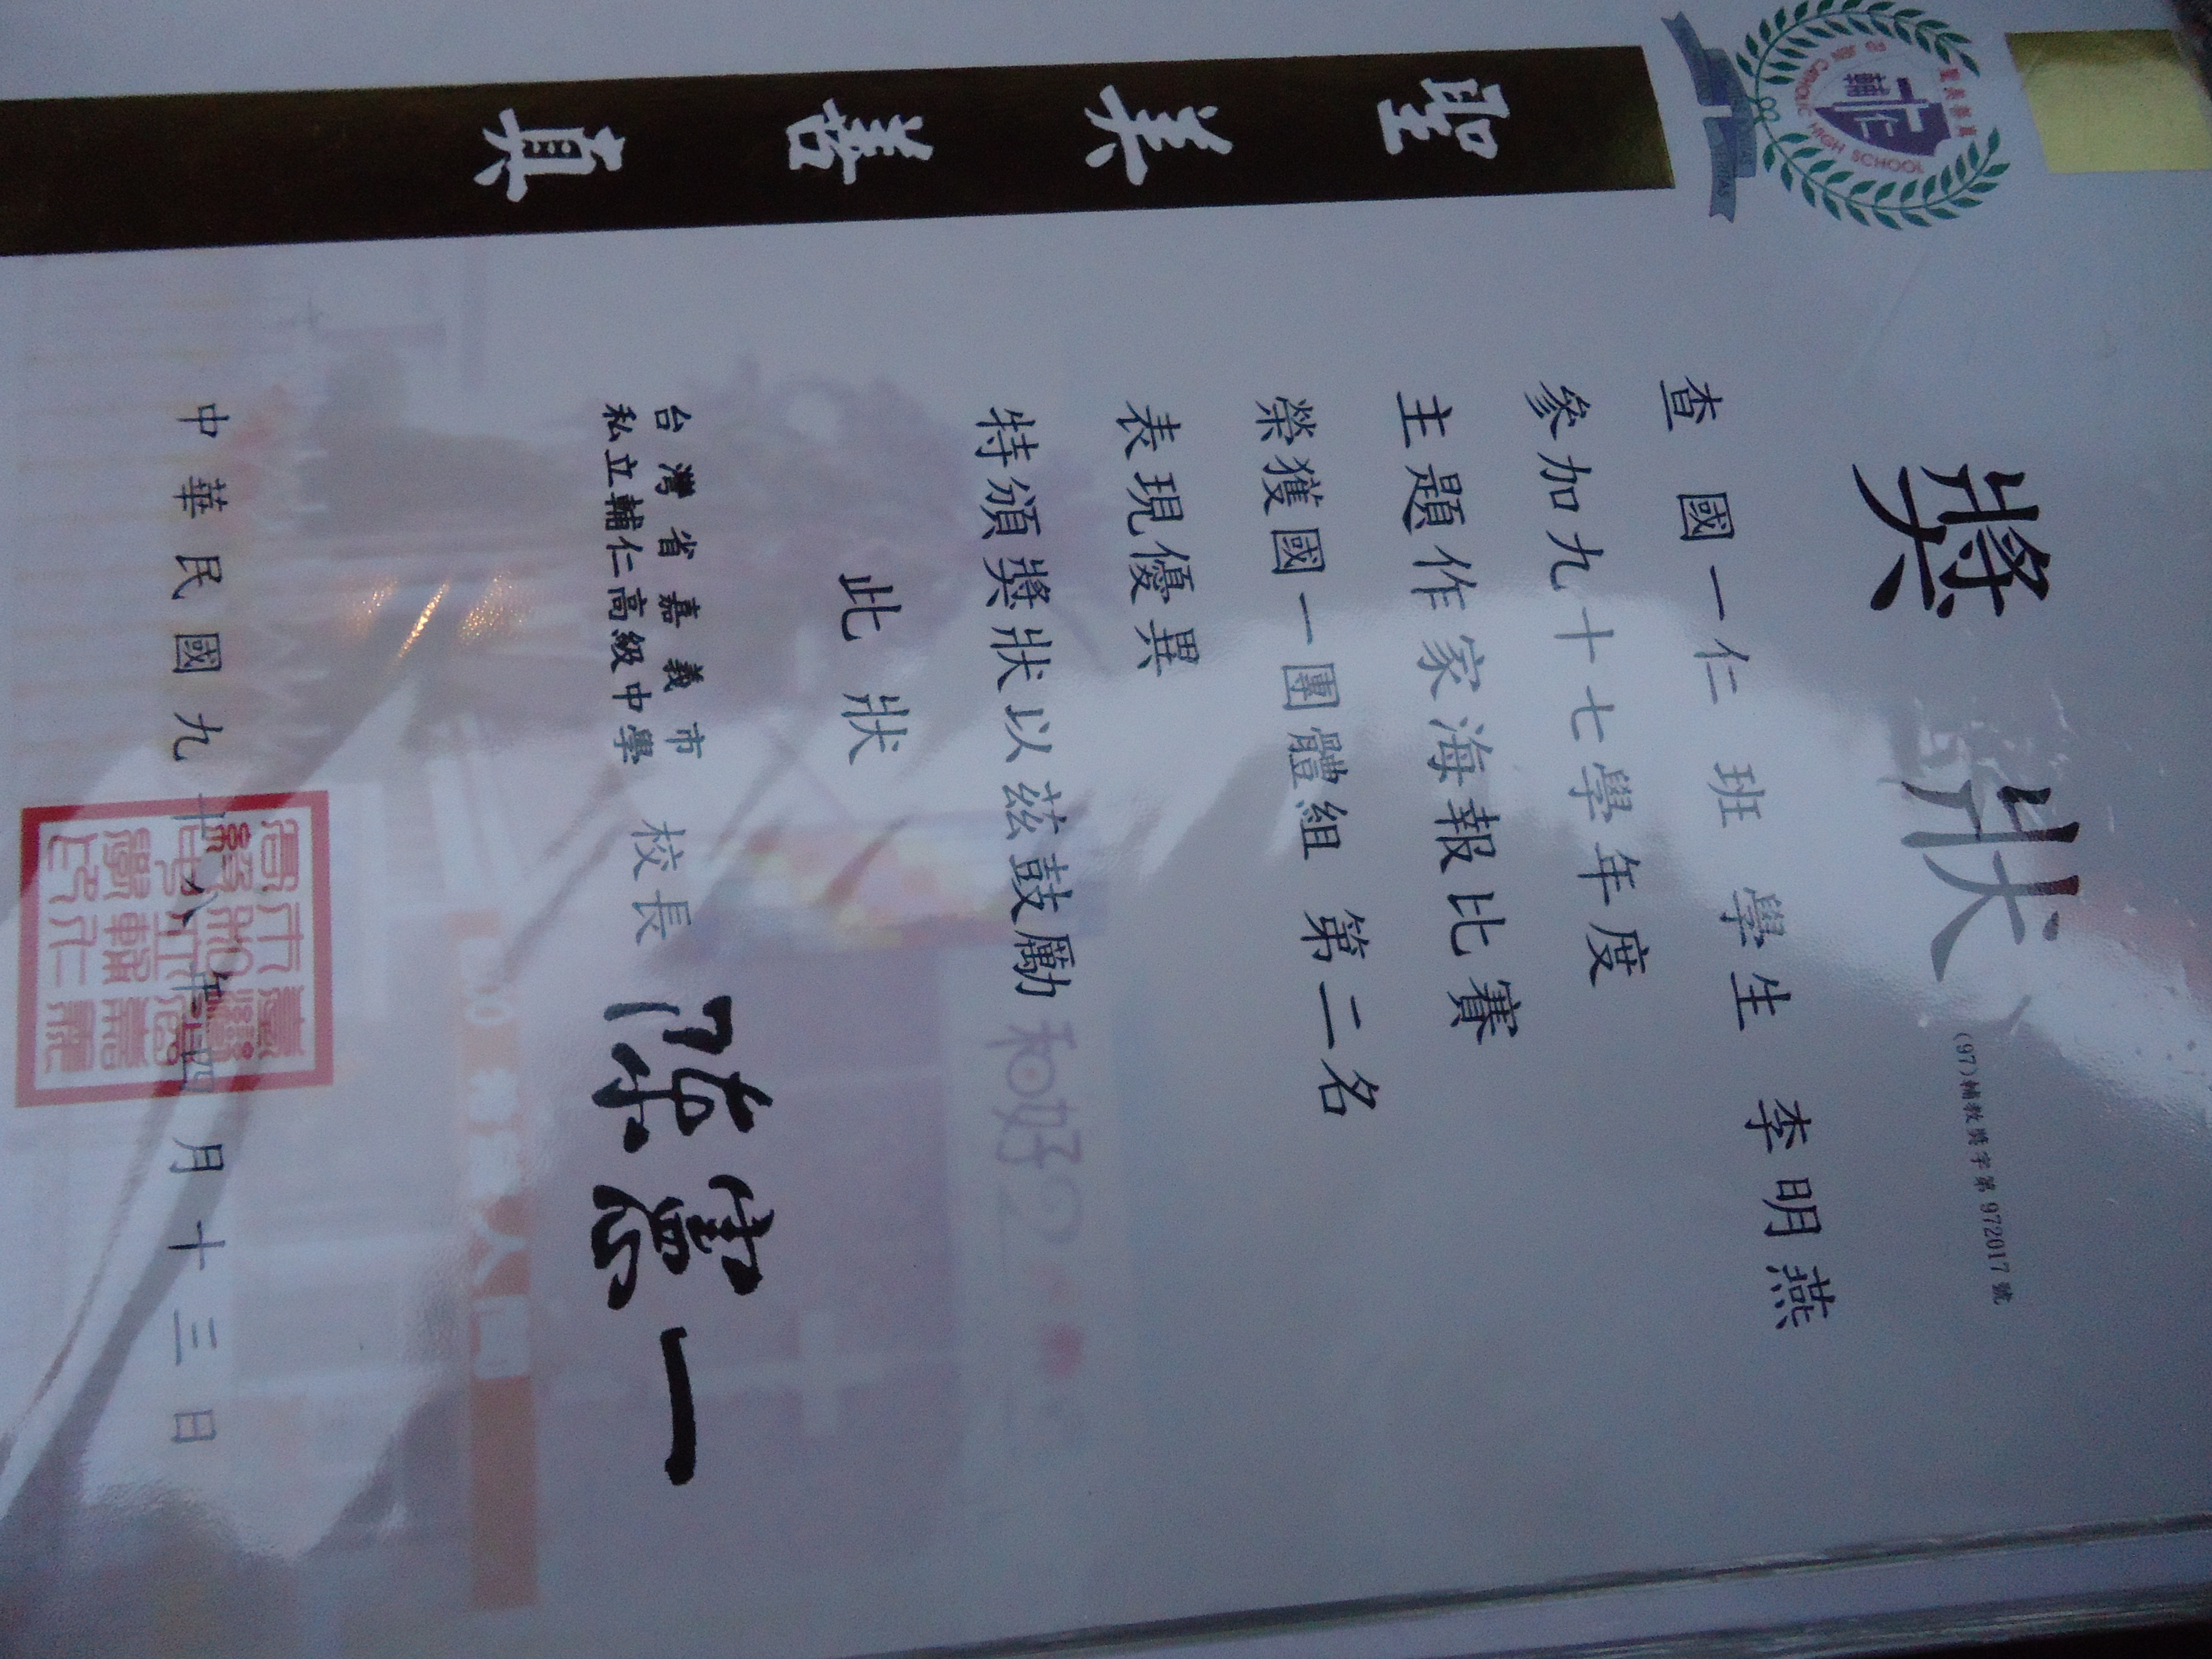 聖美善真
獎狀
(97)輔教獎字第972017號
查國一仁班 學生 李明燕
參加九十七學年度
主題作家海報比賽
榮獲國一團體組 第二名
表現優異
特頒獎狀以茲鼓勵
此狀
台灣省嘉義市
私立輔仁高級中學
校長 陳憲一
中華民國九十八年四月十三日
CATHOLIC HIGH SCHOOL